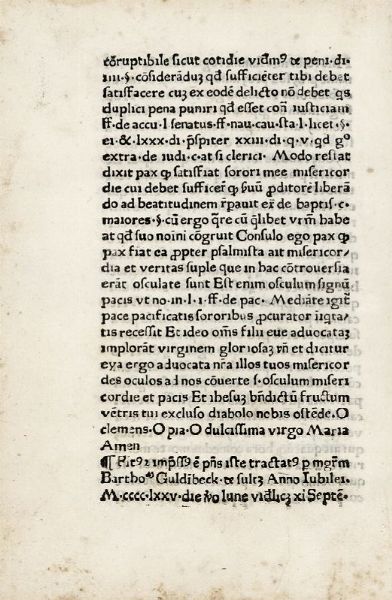 cōrruptibile sicut cotidie vidmꝰ ⁊e peni · di ·
iiii · § · cōsiderādūꝫ qđ sufficiēter tibi debet
satisfacere cuꝫ ex eodē delicto nō debet qs
duplici pena puniri qđ esset cōn̄ iusticiam
ff · de accu · l senatus · ff · nau · cau · sta · l · licet · § ·
ei · & · lxxx · di · ꝑspiter xxiii · di · q · v · qđ gº
extra · de iudi · c · at si clerici · Modo restat
dixit pax ꝙ satisfiat sorori mee misericor
die cui debet sufficer̄ ꝙ suū ꝓditorē liberā
do ad beatitudinem r̄pauit ex̄ de baptis · c ·
maiores · § · cū ergo q̄re cū q̄libet vrm̄ habe
at qđ suo noīni cōgruit Consulo ego pax ꝙ
pax fiat ea ꝓpter psalmista ait misericor ·
dia et veritas suple que in hac cōtrouersia
erāt osculate sunt Est enim osculum signū
pacis vt no · in · l · i · ff · de pac · Mediāte igit̄
pace pacificatis sororibus ꝓcurator iīqta ·
tis recessit Et ideo om̄s filii eue aduocataꝫ
implorāt virginem gloriosaꝫ vn̄ et dicitur
eya ergo aduocata nr̄a illos tuos misericor
des oculos ad nos cōuerte s · osculum miseri
cordie et pacis Et ihesuꝫ bn̄dictū fructum
vētris tui excluso diabolo nobis ostēde · O
clemens · O pia · O dulcissima virgo Maria
Amen
¶ Fitꝰ ⁊ impssꝰ ē pn̄s iste tractatꝰ p mgrm̄
Bartho · Guldībeck · de sultꝫ Anno Iubilei ·
M · cccc · lxxv · die vo lune vidlicꝫ xi Septē ·